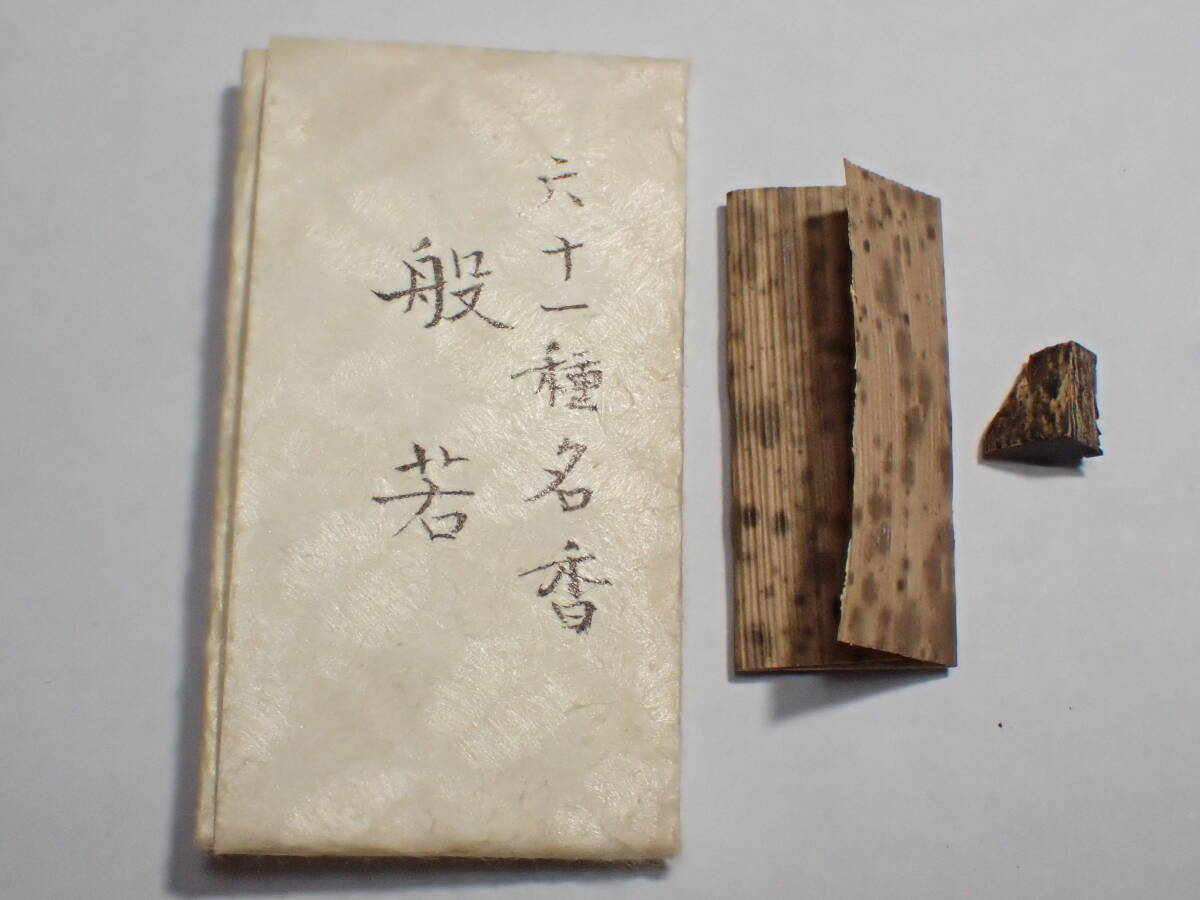 六十一種名香
般若